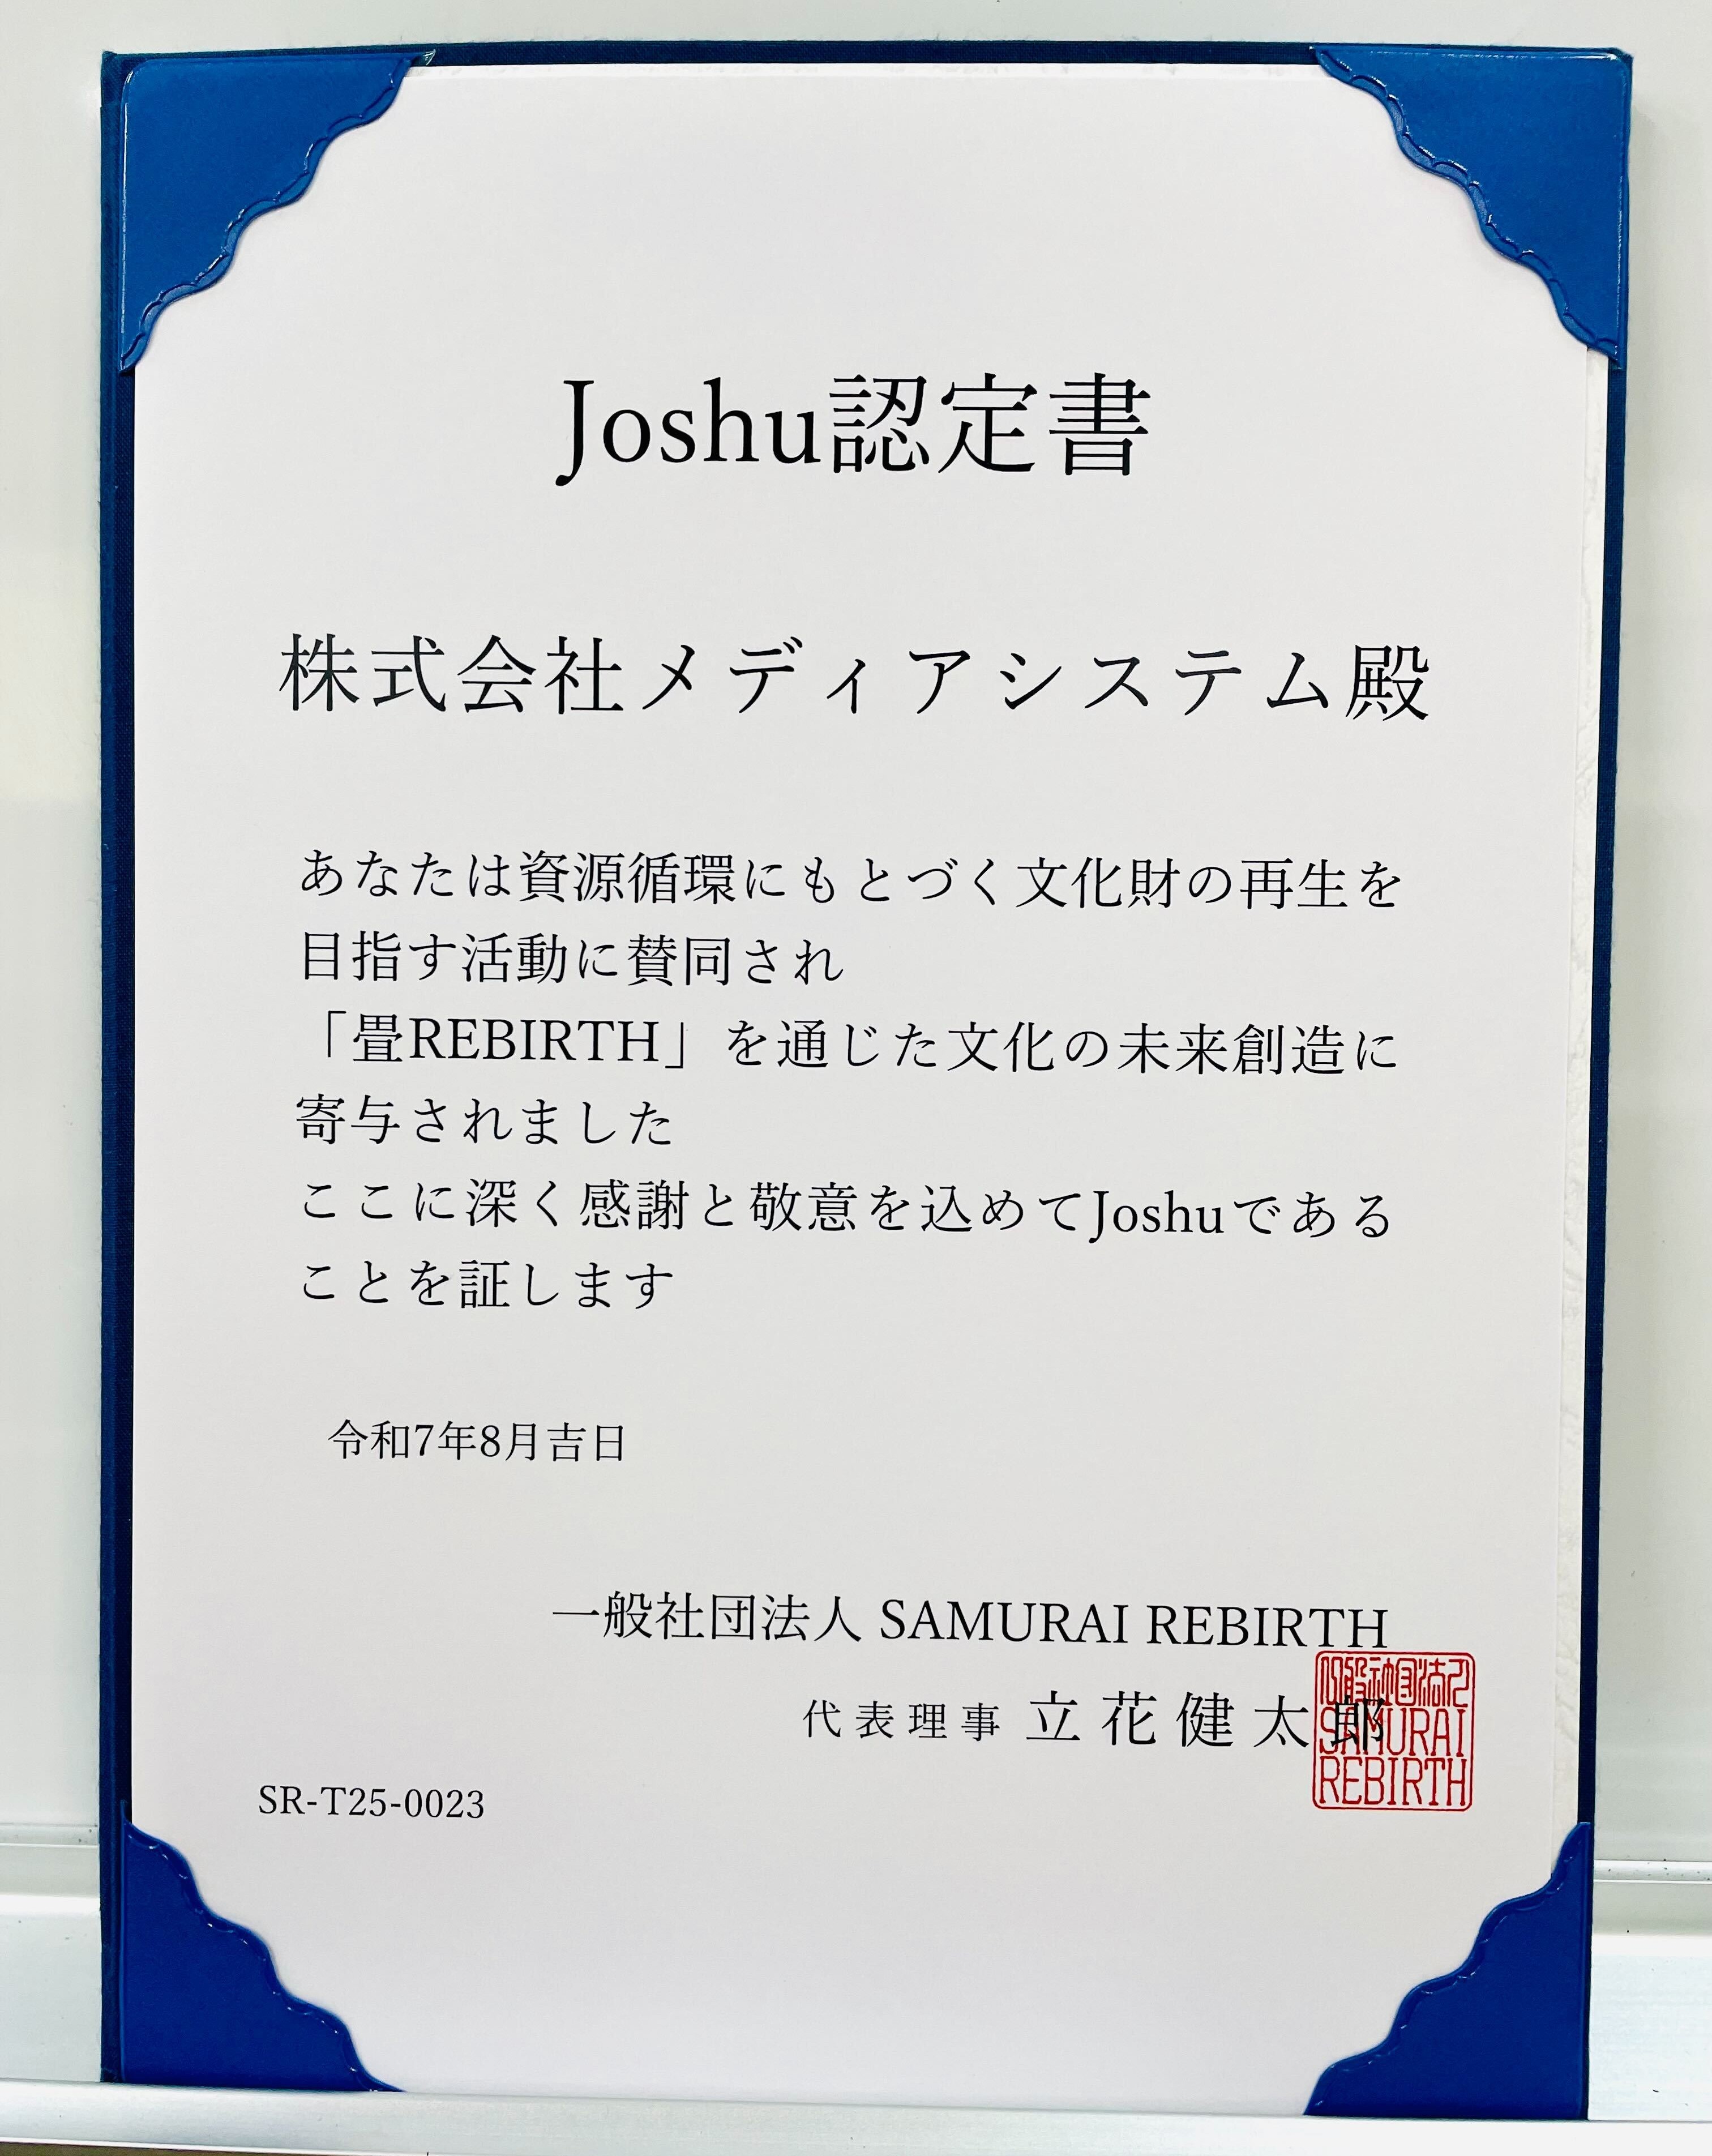 Joshu認定書
株式会社メディアシステム殿
あなたは資源循環にもとづく文化財の再生を
目指す活動に賛同され
「畳REBIRTH」を通じた文化の未来創造に
寄与されました
ここに深く感謝と敬意を込めてJoshuである
ことを証します
令和7年8月吉日
一般社団法人 SAMURAI REBIRTH
代表理事 立花健太郎
一般社団法人
SAMURAI
REBIRTH
SR-T25-0023